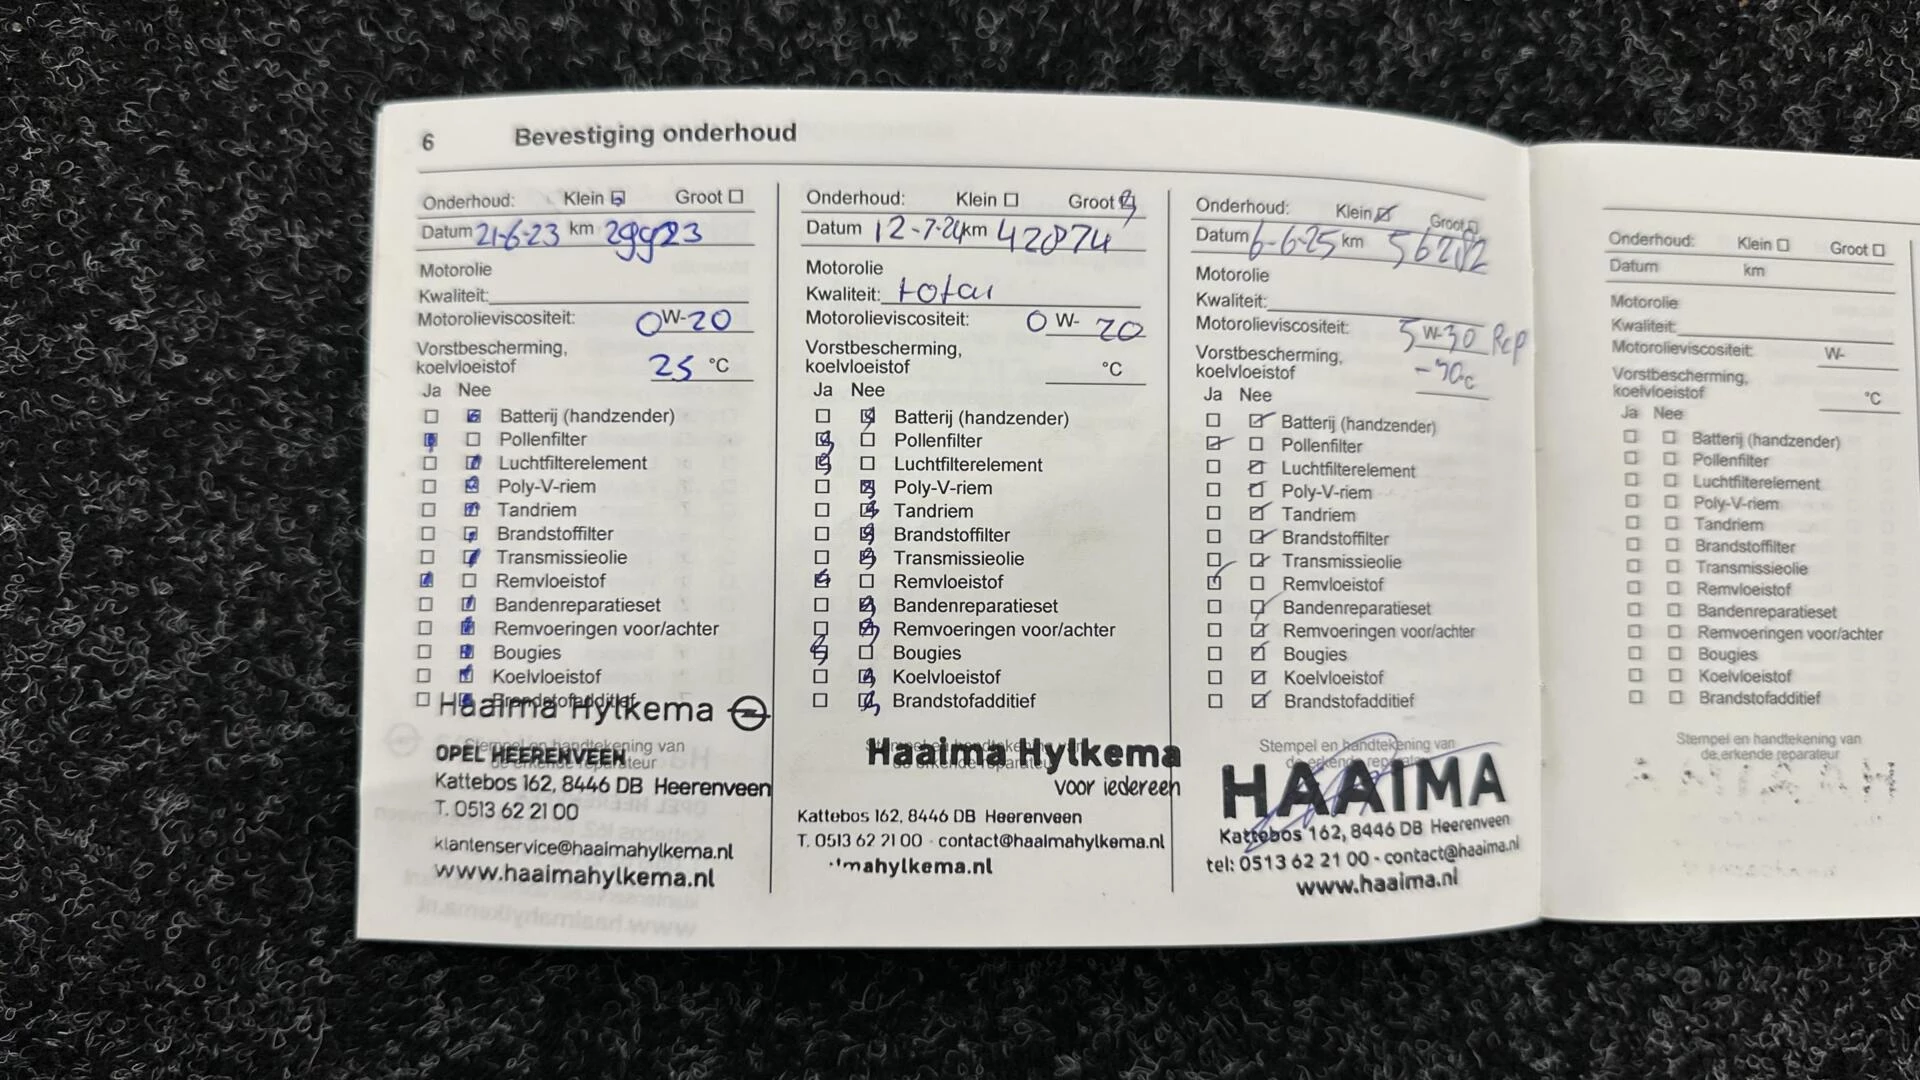 6 Bevestiging onderhoud
Onderhoud: Klein Groot
Datum 21-6-23 km 29923
Motorolie
Kwaliteit:
Motorolieviscositeit: 0W-20
Vorstbescherming,
koelvloeistof 25 °C
Ja Nee
Batterij (handzender)
Pollenfilter
Luchtfilterelement
Poly-V-riem
Tandriem
Brandstoffilter
Transmissieolie
Remvloeistof
Bandenreparatieset
Remvoeringen voor/achter
Bougies
Koelvloeistof
Brandstofadditief
Haaima Hylkema
Stempel en handtekening van
de erkende reparateur
OPEL HEERENVEEN
Kattebos 162, 8446 DB Heerenveen
T. 0513 62 21 00
klantenservice@haaimahylkema.nl
www.haaimahylkema.nl
Onderhoud: Klein Groot
Datum 12-7-24 km 42874
Motorolie
Kwaliteit: total
Motorolieviscositeit: 0 W- 20
Vorstbescherming,
koelvloeistof °C
Ja Nee
Batterij (handzender)
Pollenfilter
Luchtfilterelement
Poly-V-riem
Tandriem
Brandstoffilter
Transmissieolie
Remvloeistof
Bandenreparatieset
Remvoeringen voor/achter
Bougies
Koelvloeistof
Brandstofadditief
Stempel en handtekening van
de erkende reparateur
Haaima Hylkema
voor iedereen
Kattebos 162, 8446 DB Heerenveen
T. 0513 62 21 00 - contact@haaimahylkema.nl
mahylkema.nl
Onderhoud: Klein Groot
Datum 6-6-25 km 56282
Motorolie
Kwaliteit:
Motorolieviscositeit: 5 W-30 Rcp
Vorstbescherming,
koelvloeistof °C
Ja Nee
Batterij (handzender)
Pollenfilter
Luchtfilterelement
Poly-V-riem
Tandriem
Brandstoffilter
Transmissieolie
Remvloeistof
Bandenreparatieset
Remvoeringen voor/achter
Bougies
Koelvloeistof
Brandstofadditief
Stempel en handtekening van
de erkende reparateur
HAAIMA
Kattebos 162, 8446 DB Heerenveen
tel: 0513 62 21 00 - contact@haaima.nl
www.haaima.nl
Onderhoud: Klein Groot
Datum km
Motorolie
Kwaliteit:
Motorolieviscositeit: W-
Vorstbescherming,
koelvloeistof °C
Ja Nee
Batterij (handzender)
Pollenfilter
Luchtfilterelement
Poly-V-riem
Tandriem
Brandstoffilter
Transmissieolie
Remvloeistof
Bandenreparatieset
Remvoeringen voor/achter
Bougies
Koelvloeistof
Brandstofadditief
Stempel en handtekening van
de erkende reparateur